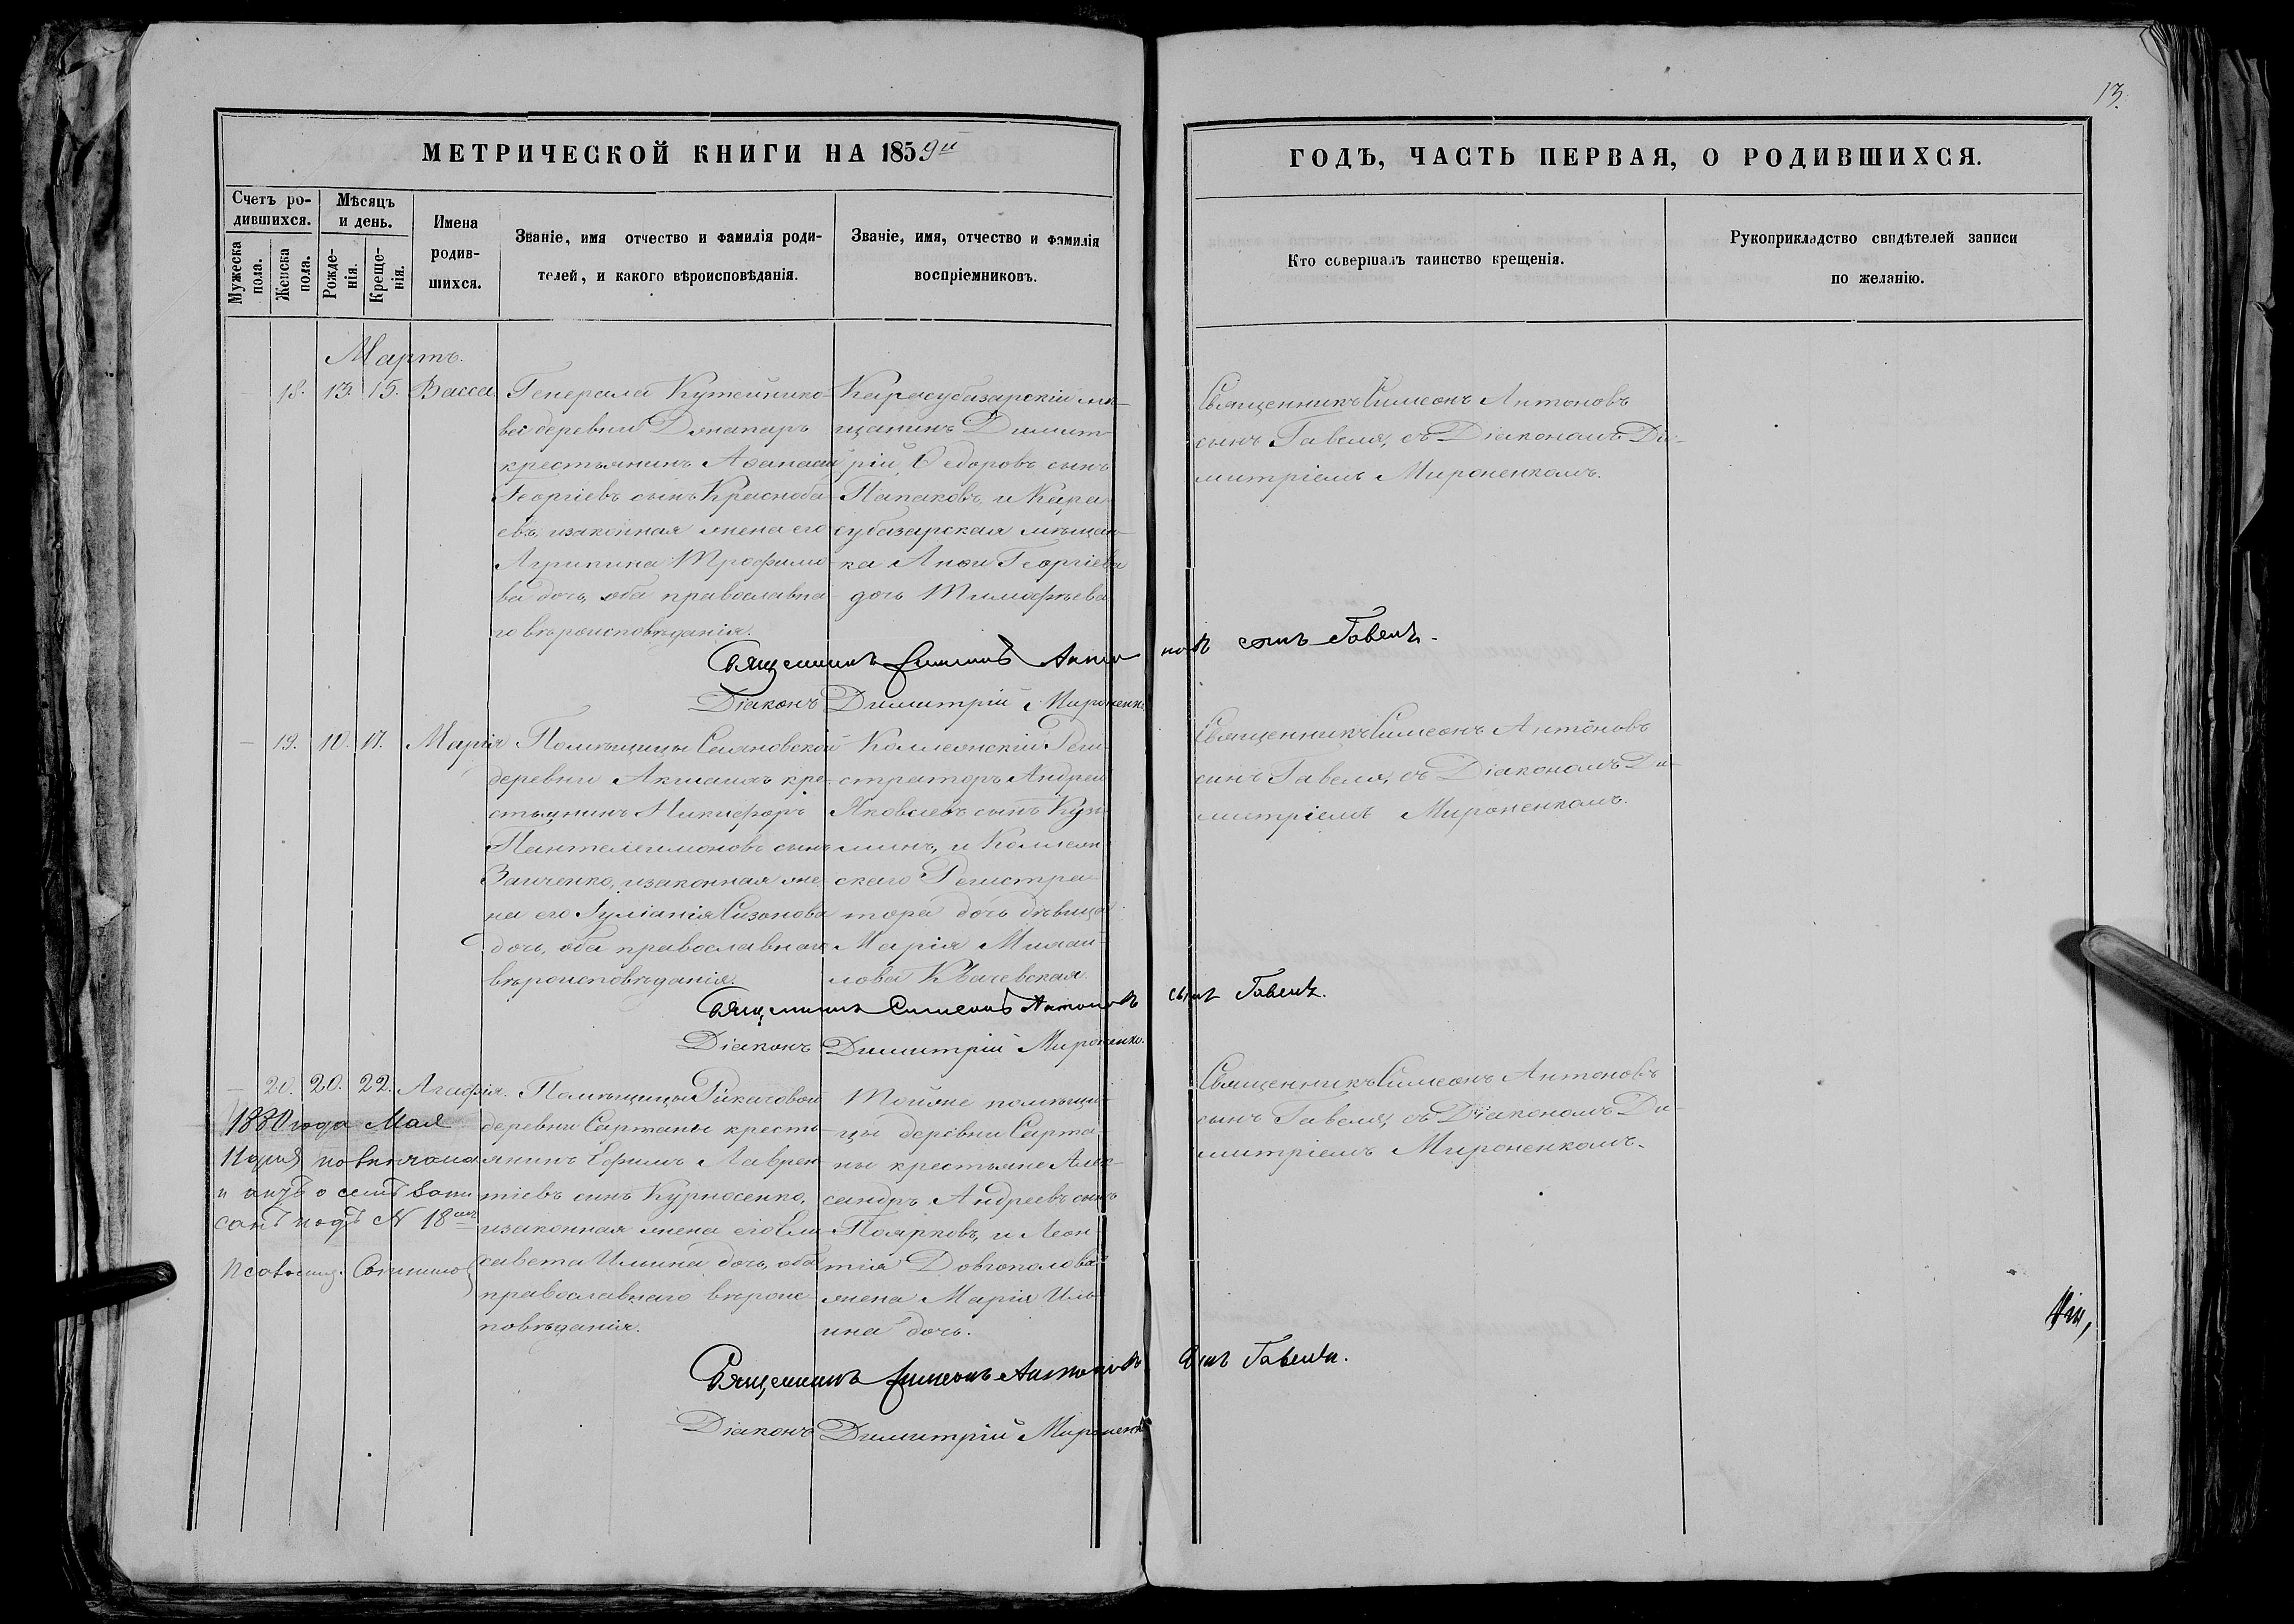 13.
МЕТРИЧЕСКОЙ КНИГИ НА 1859й
ГОДЪ, ЧАСТЬ ПЕРВАЯ, О РОДИВШИХСЯ.
Счетъ ро-
дившихся.
Мужеска
пола.
Женска
пола.
Мѣсяцъ
и день.
Рожде-
нія.
Креще-
нія.
Имена
родив-
шихся.
Званіе, имя отчество и фамилія роди-
телей, и какого вѣроисповѣданія.
Званіе, имя, отчество и фамилія
воспріемниковъ.
Кто совершалъ таинство крещенія.
Рукоприкладство свидѣтелей записи
по желанію.
Мартъ.
18. 13. 15. Васса.
Генерала Кутейнико-
ва деревни
крестьянинъ Афанасій
Георгіевъ сынъ Краснова-
евъ, изаконная жена его
Агрипина Трофимо-
ва дочь, оба православна-
го вѣроисповѣданія.
Карасубазарскій мѣ-
щанинъ Димит-
рій Ѳедоровъ сынъ
Папаковъ, и Кара-
субазарская мѣщан-
ка Анна Георгіева
дочь Тимофѣева
Священникъ Симеонъ Антоновъ
сынъ Гавеля, съ Діакономъ Ди-
митріемъ Мироненкомъ.
Священникъ Симеонъ Антоновъ сынъ Гавель.
Діаконъ Димитрій Мироненко
— 19. 10. 17. Марія
Помѣщицы Саяновской
деревни Акташъ кре-
стьянинъ Никифоръ
Пантелеимоновъ сынъ
Заиченко, изаконная же-
на его Іуліанія Сизонова
дочь, оба православнаго
вѣроисповѣданія.
Коллежскій Реги-
страторъ Андрей
Яковлевъ сынъ Кузь-
минъ, и Коллеж-
скаго Регистра-
тора дочь дѣвица
Марія Михаи-
лова Квачевская.
Священникъ Симеонъ Антоновъ
сынъ Гавеля, съ Діакономъ Ди-
митріемъ Мироненкомъ.
Священникъ Симеонъ Антоновъ сынъ Гавель.
Діаконъ Димитрій Мироненко.
— 20. 20. 22. Агафія.
Помѣщицы Рикачовой
деревни Сартаны кресть-
янинъ Ефимъ Лаврен-
тіевъ сынъ Курносенко,
изаконная жена его Ели-
савета Ильина дочь, оба
православнаго вѣроис-
повѣданія.
Тойже помѣщи-
цы деревни Сарта-
ны крестьяне Алек-
сандръ Андреевъ сынъ
Поярковъ, и Леон-
тія Довгополова
жена Марія Иль-
ина дочь.
Священникъ Симеонъ Антоновъ
сынъ Гавеля, съ Діакономъ Ди-
митріемъ Мироненкомъ.
1880 года Мая
повѣнчана
и актъ о семъ запи
санъ подъ N 18
Священникъ Симеонъ Антоновъ сынъ Гавель.
Діаконъ Димитрій Мироненко